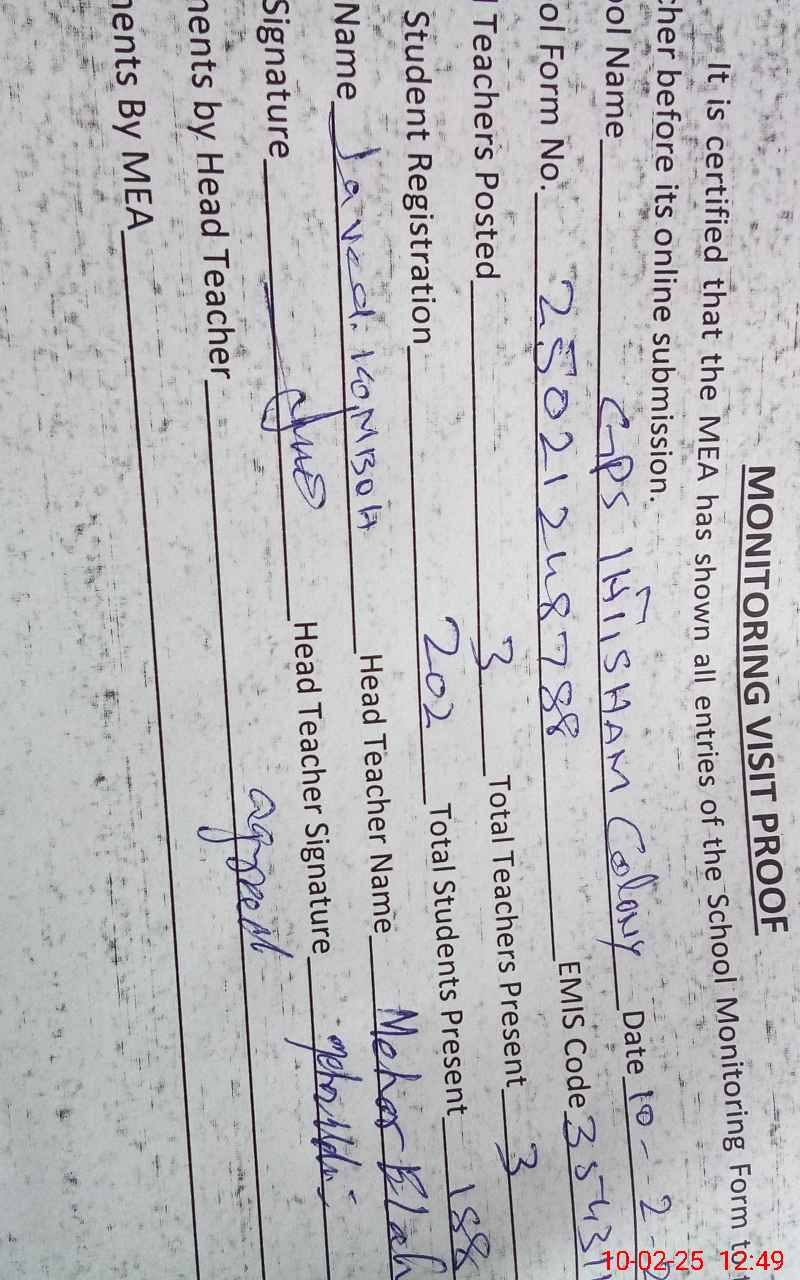 MONITORING VISIT PROOF
It is certified that the MEA has shown all entries of the School Monitoring Form to
cher before its online submission.
ool Name GPS IHTISHAM Colony Date 10-2-2
ol Form No. 25021248788 EMIS Code 35431
l Teachers Posted 3 Total Teachers Present 3
Student Registration 202 Total Students Present 188
Name Javed. Head Teacher Name Mehar
Signature Head Teacher Signature
nents by Head Teacher agreed
nents By MEA
10-02-25 12:49